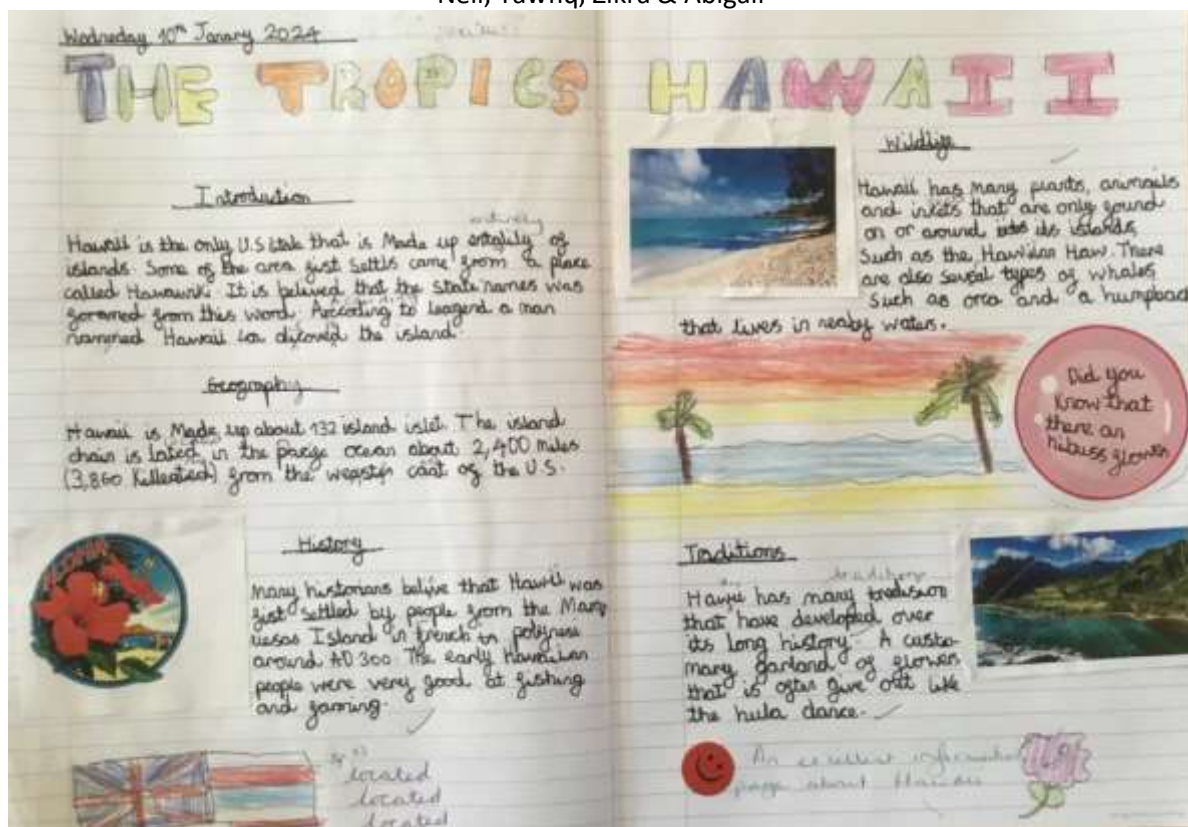 Neil, Tawfiq, Zikra & Abigail
Wedneday 10th Janary 2024
THE TROPICS
Introduction
entirely
Hawaii is the only U.S state that is Made up of
islands. Some of the area first settls came from a place
called It is belived that the state names was
from this word. According to leagend a man
nammed Hawaii Loa the island.
Geography
Hawaii is Made up about 132 island islet. The island
chain is lated in the ocean about 2,400 miles
(3,860 from the of the U.S.
ALOHA
History
Many historians belive that was
fist settled by people from the Marq
uesas Island in french in
around AD 300. The early hawaiian
people were very good at fishing
and farming.
sp
located
located
located
HAWAII
Wildlife
Hawaii has many plants, animals
and that are only found
on or around its islands
Such as the There
are also types of whales
Such as orca and a humpback
that lives in waters.
Did you
know that
there an
flower
Traditions
traditions
has many
that have developed over
its long history. A custo-
mary garland of flowers
that is give out like
the hula dance.
An excellent information
page about Hawaii